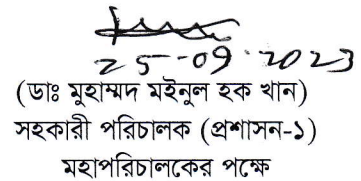 25-09-2023
(ডাঃ মুহাম্মদ মইনুল হক খান)
সহকারী পরিচালক (প্রশাসন-১)
মহাপরিচালকের পক্ষে